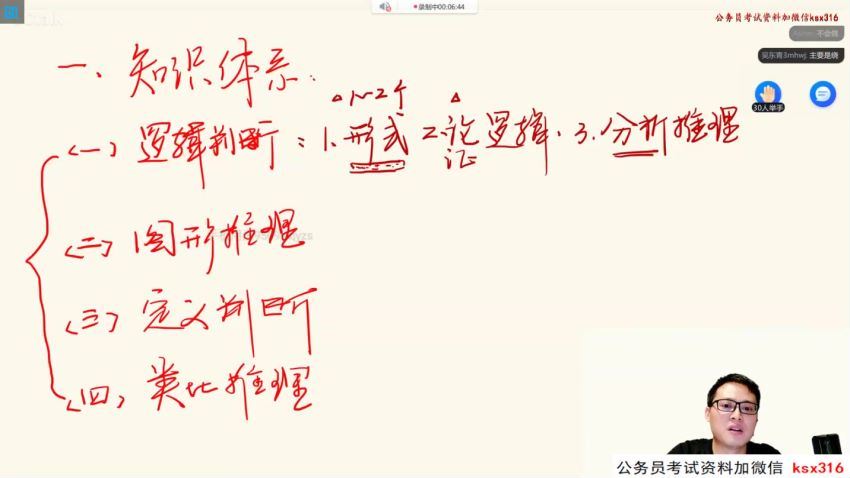 录制中00:06:44
公务员考试资料加微信ksx316
不会做
吴东青3mhwj: 主要是绕
30人举手
一、知识体系:
1~2个
(一) 逻辑判断: 1.形式 2.论证逻辑. 3.分析推理
(二) 图形推理
(三) 定义判断
(四) 类比推理
公务员考试资料加微信 ksx316